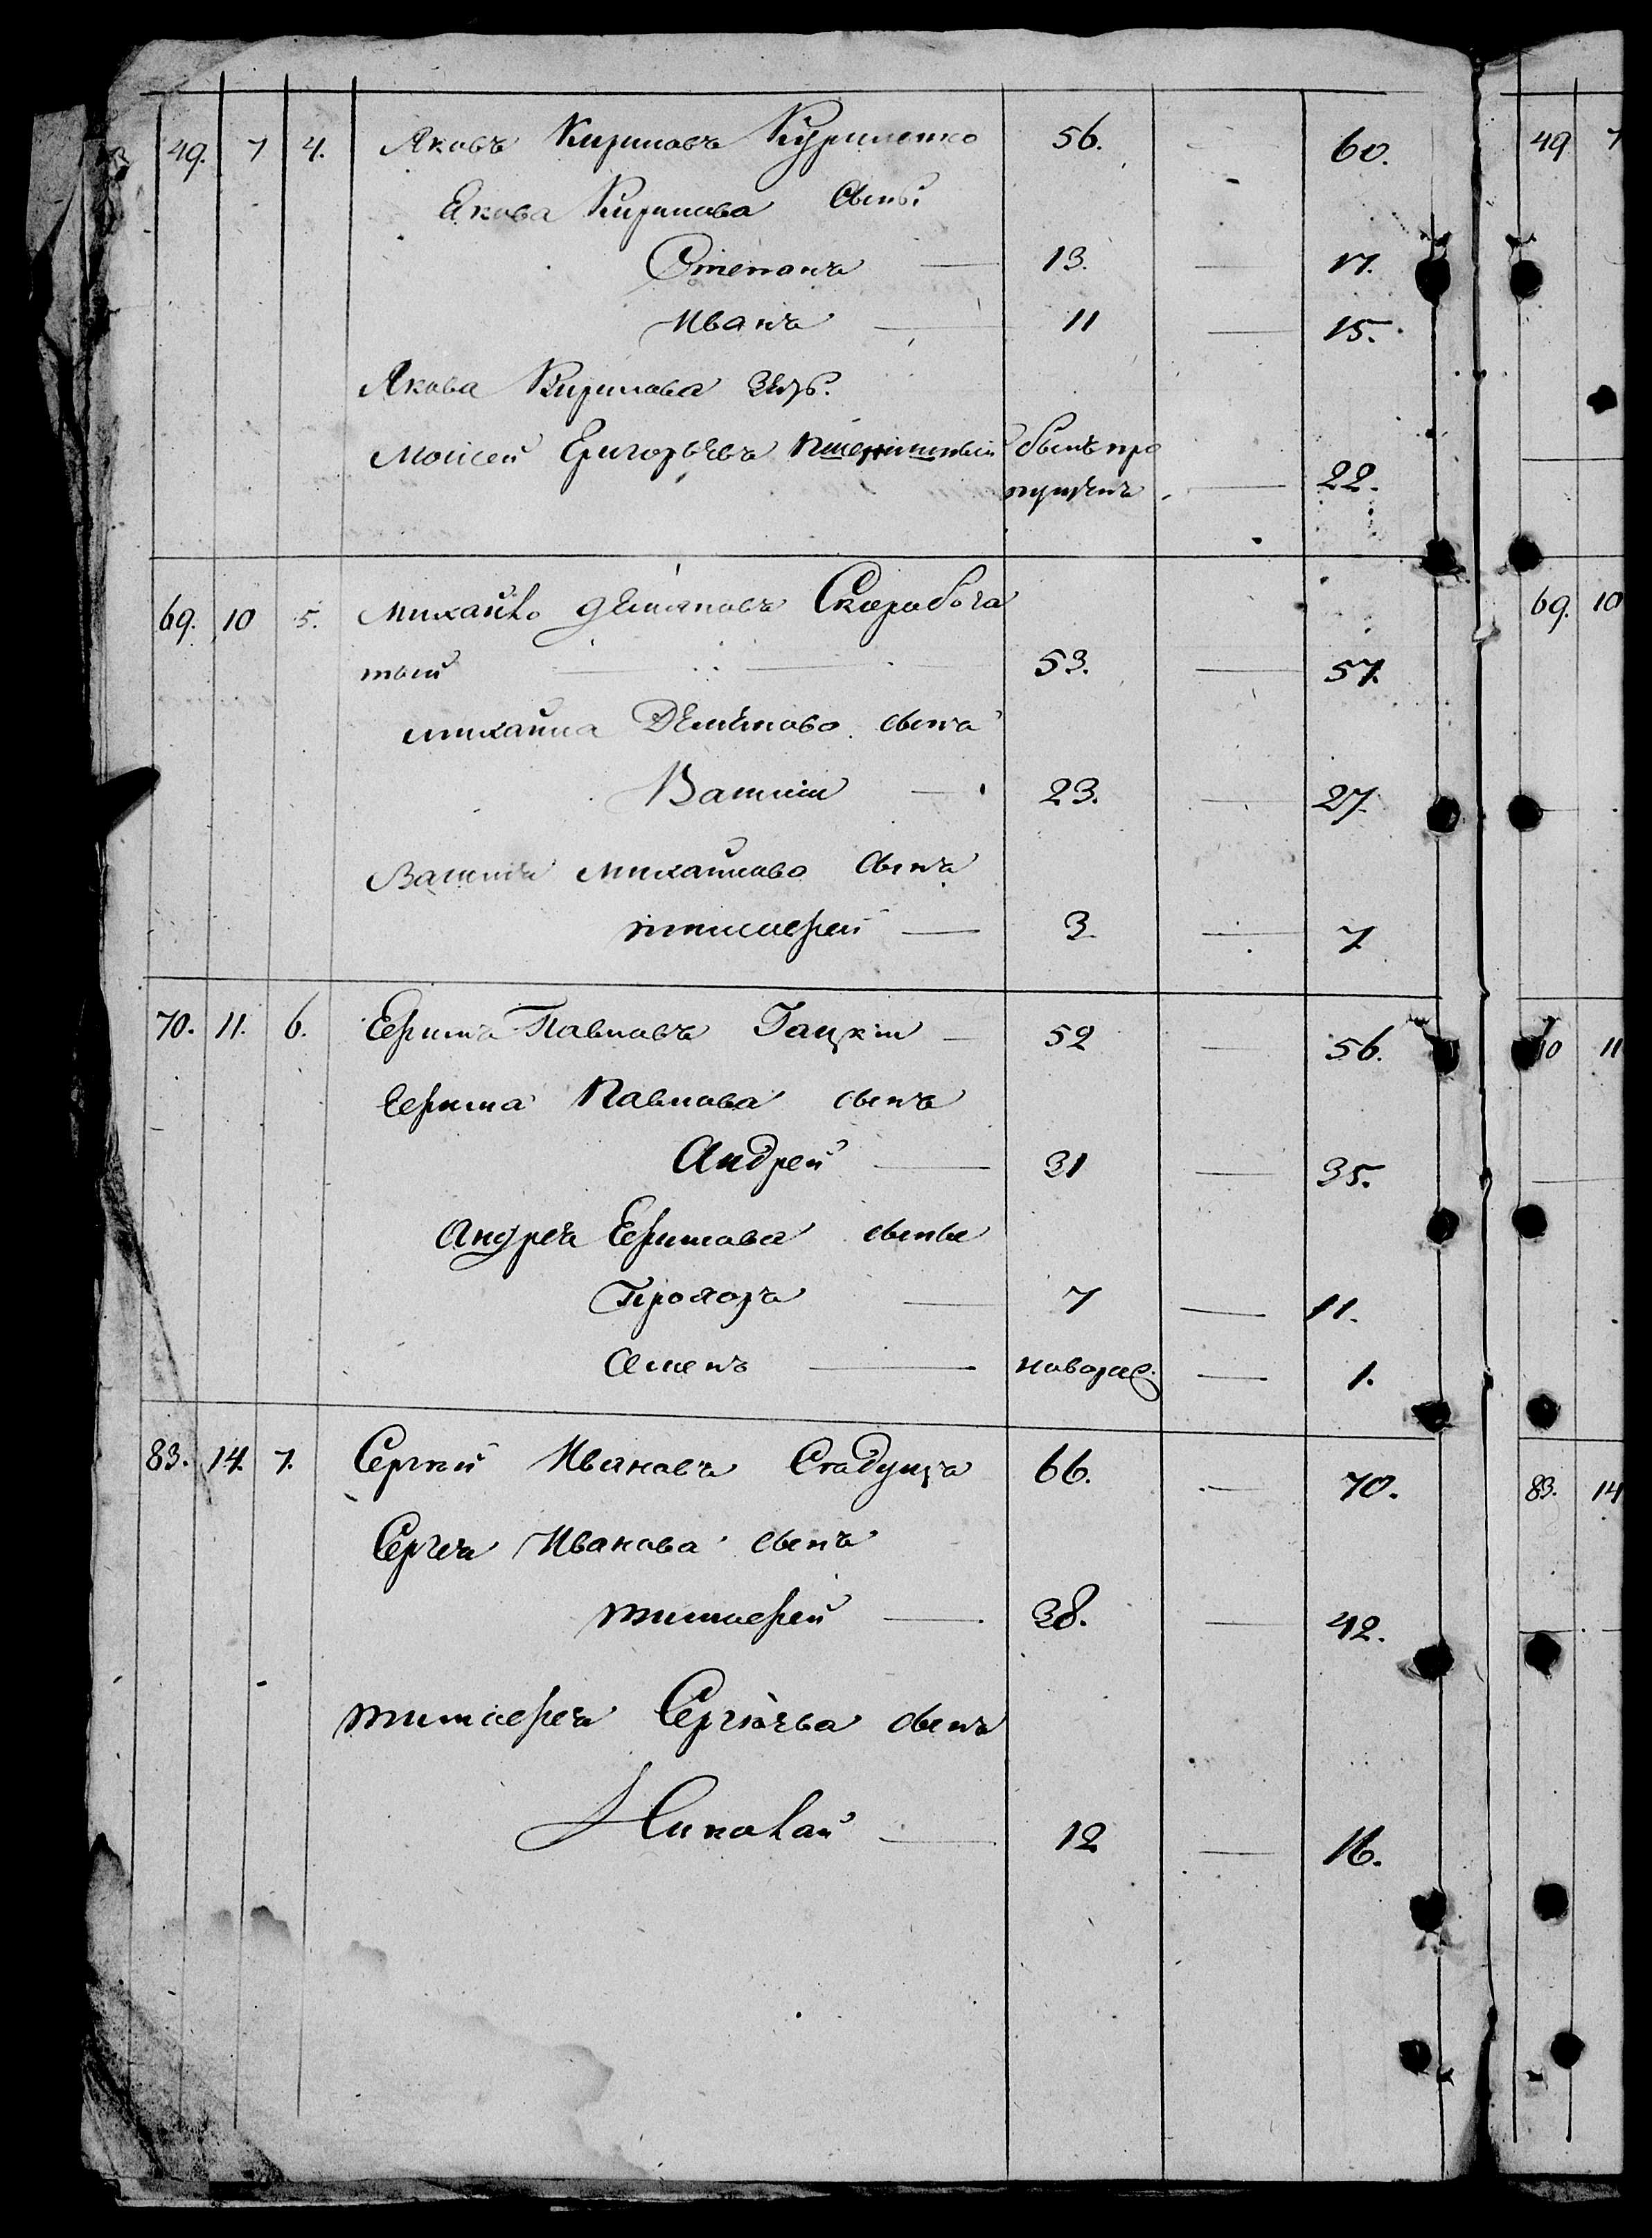 49. 7 4. Яковъ Кириловъ Куриленко 56. — 60.
Якова Кирилова сынъ.
Степанъ — 13. — 17.
Иванъ — 11 — 15.
Якова Кирилова зять.
Моисей Григорьевъ былъ про
пущенъ. — 22.
69. 10 5. Михайло Демяновъ Скоробога
тый — 53. — 57.
Михайла Демянова сынъ
Василій — 23. — 27.
Василія Михайлова сынъ
Тимофей — 3 — 7
70. 11. 6. Ефимъ Павловъ Гацкій — 52 — 56.
Ефима Павлова сынъ
Андрей — 31 — 35.
Андрея Ефимова сынья
Прохоръ — 7 — 11.
Семенъ — новорож. — 1.
83. 14. 7. Сергей Ивановъ Стадуцга 66. — 70.
Сергея Иванова сынъ
Тимофей — 38. — 42.
Тимофея Сергеева сынъ
Николай — 12 — 16.
49 7
69. 10
70 11
83. 14